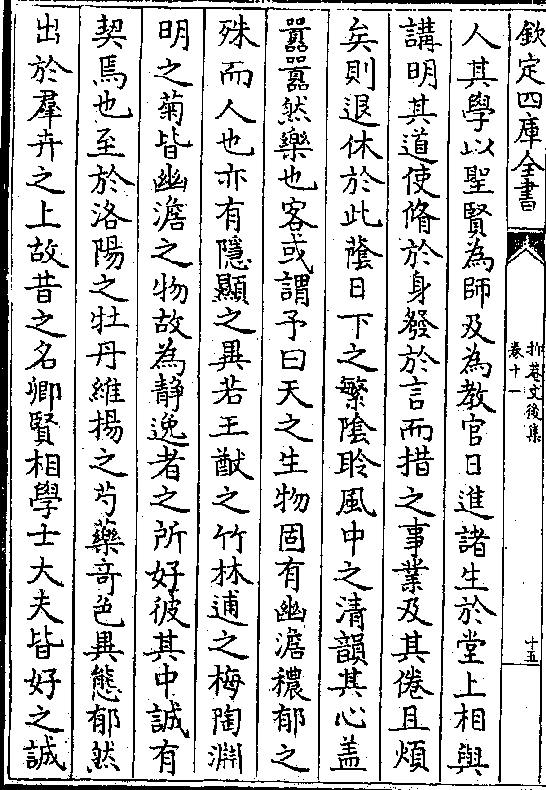 欽定四庫全書
抑菴文後集
卷十一
十五
人其學以聖賢為師及為教官日進諸生於堂上相與
講明其道使脩於身發於言而措之事業及其倦且煩
矣則退休於此蔭日下之繁陰聆風中之清韻其心盖
囂囂然樂也客或謂予曰天之生物固有幽澹穠郁之
殊而人也亦有隱顯之異若王猷之竹林逋之梅陶淵
明之菊皆幽澹之物故為静逸者之所好彼其中誠有
契焉也至於洛陽之牡丹維揚之芍藥竒色異態郁然
出於羣卉之上故昔之名卿賢相學士大夫皆好之誠